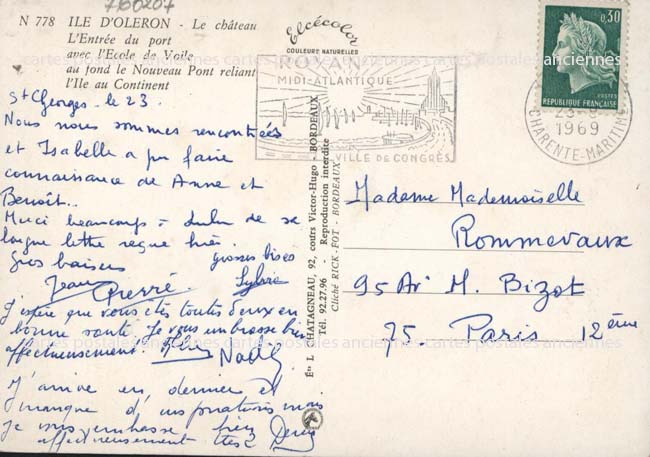 766207
N 778 ILE D'OLERON - Le château
L'Entrée du port
avec l'Ecole de Voile
au fond le Nouveau Pont reliant
l'Ile au Continent
Elcécolor
COULEURS NATURELLES
ROYAN
MIDI-ATLANTIQUE
VILLE DE CONGRÈS
0,30
POSTES
REPUBLIQUE FRANÇAISE
1969
CHARENTE-MARITIME
St Georges. le 23.
Nous nous sommes rencontrées
et Isabelle a pu faire
connaissance de Anne et
Benoît...
Merci beaucoup à Lulu de sa
longue lettre reçue hier.
Gros baisers
grosses bises
Jean Pierre
Sylvie
J'espère que vous êtes toutes deux en
bonne santé. Je vous embrasse bien
affectueusement. Noëll
J'arrive en dernier et
manque d'inspirations mais
je vous embrasse bien
affectueusement Denis
Éts L. CHATAGNEAU, 92, cours Victor-Hugo - BORDEAUX
Tél. 92.27.96 - Reproduction interdite
Cliché RICK-FOT - BORDEAUX
Madame Mademoiselle
Rommevaux
95 Av. M. Bizot
75 Paris 12ème
cartes postales anciennes